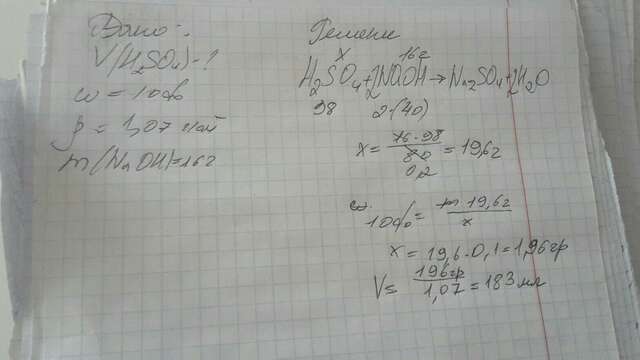 Дано:
V(H₂SO₄)-?
ω = 10%
ρ = 1,07 г/мл
m(NaOH)=16г
Решение
x 16г
H₂SO₄+2NaOH→Na₂SO₄+2H₂O
98 2·(40)
x = 16·98 / 80 = 19,6г
0,2
ω.
10% = m 19,6г / x
x = 19,6·0,1=1,96гр
V= 196гр / 1,07 = 183мл